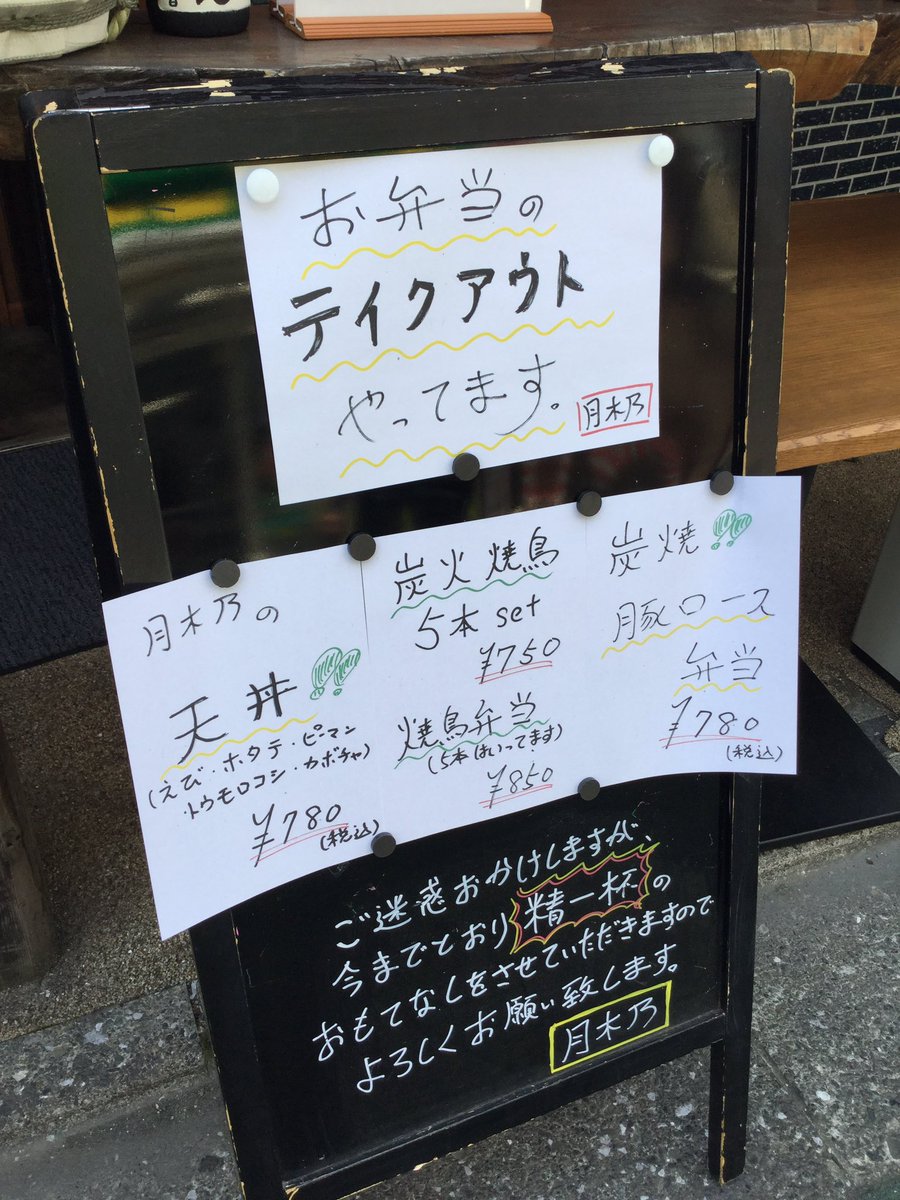 お弁当の
テイクアウト
やってます。
月木乃
月木乃の
天丼
(えび・ホタテ・ピーマン
トウモロコシ・カボチャ)
¥780
(税込)
炭火焼鳥
5本set
¥750
焼鳥弁当
(5本はいってます)
¥850
炭焼!!
豚ロース
弁当
¥780
(税込)
ご迷惑おかけしますが、
今までとおり精一杯の
おもてなしをさせていただきますので
よろしくお願い致します。
月木乃